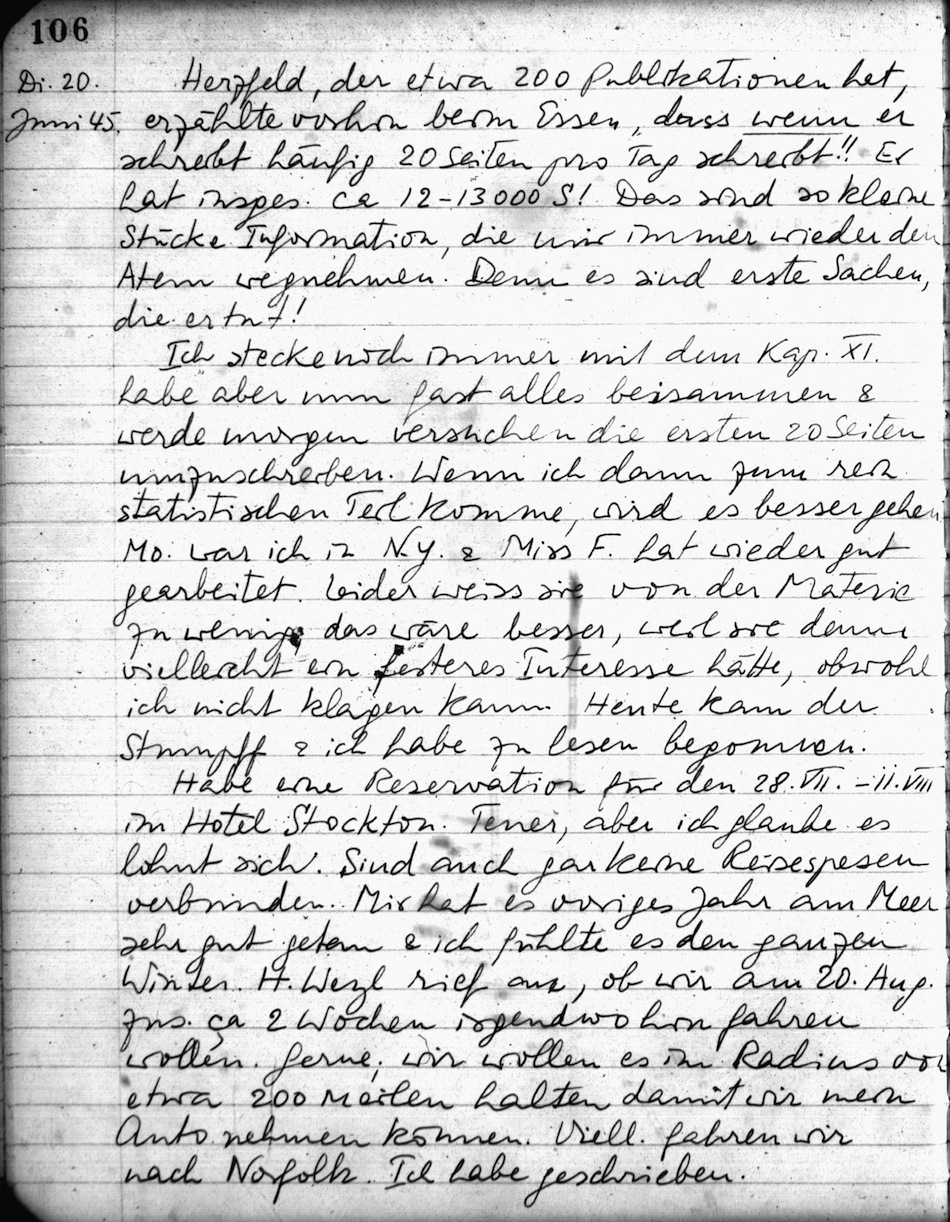 106
Di. 20. Herzfeld, der etwa 200 Publikationen hat,
Juni 45. erzählte vorhin beim Essen, dass wenn er
schreibt häufig 20 Seiten pro Tag schreibt!! Er
hat insges. ca 12-13000 S! Das sind so kleine
Stücke Information, die mir immer wieder den
Atem wegnehmen. Denn es sind erste Sachen,
die er tut!
Ich stecke noch immer mit dem Kap. XI.
habe aber nun fast alles beisammen &
werde morgen versuchen die ersten 20 Seiten
umzuschreiben. Wenn ich dann zum rein
statistischen Teil komme, wird es besser gehen.
Mo. war ich in N.Y. & Miss F. hat wieder gut
gearbeitet. Leider weiss sie von der Materie
zu wenig, das wäre besser, weil sie dann
vielleicht ein festeres Interesse hätte, obwohl
ich nicht klagen kann. Heute kam der
Stumpff & ich habe zu lesen begonnen.
Habe eine Reservation für den 28.VII. - 11.VIII
im Hotel Stockton. Teuer, aber ich glaube es
lohnt sich. Sind auch gar keine Reisespesen
verbunden. Mir hat es voriges Jahr am Meer
sehr gut getan & ich fühlte es den ganzen
Winter. H. Weyl rief an, ob wir am 20. Aug.
zus. ca 2 Wochen irgendwohin fahren
wollen. Gerne, wir wollen es im Radius von
etwa 200 Meilen halten damit wir mein
Auto nehmen können. Viell. fahren wir
nach Norfolk. Ich habe geschrieben.